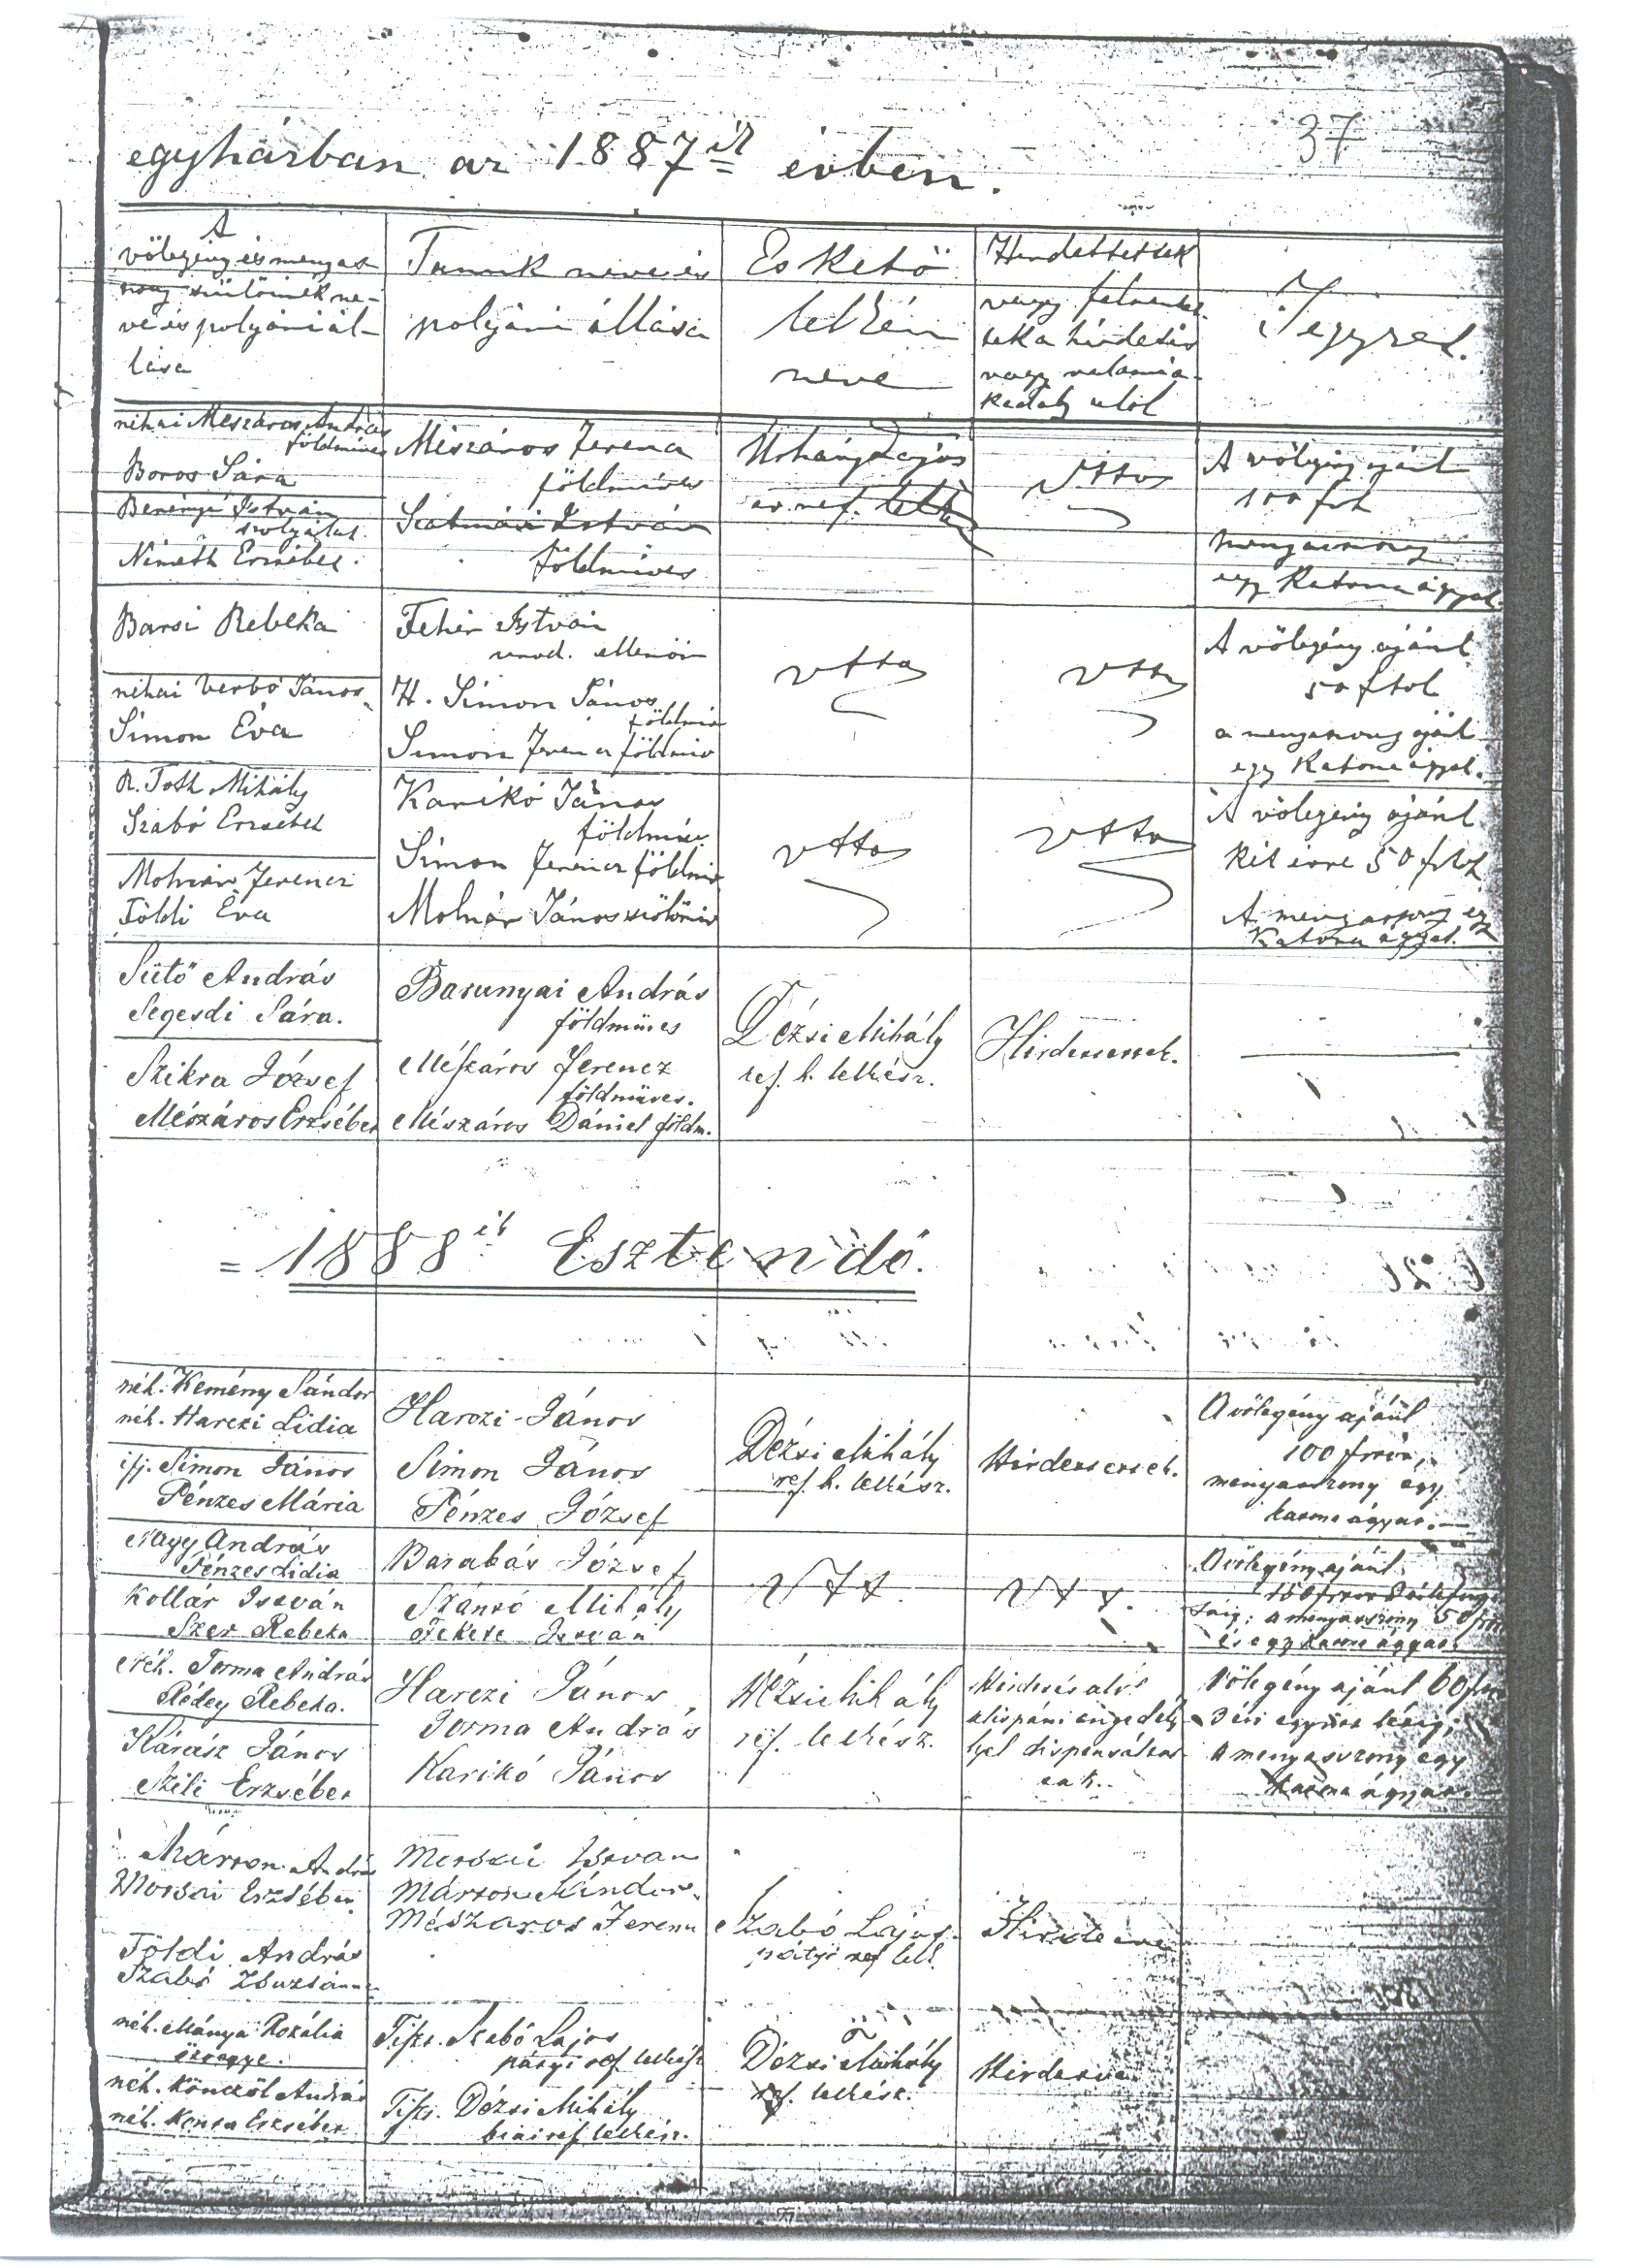 37
egyházban az 1887ik évben.
A
vőlegény és menyas
szony szülőinek ne-
ve és polgári ál-
lása
Tanuk neve és
polgári állása
Esketö
lelkész
neve
Hirdettettek
vagy felmentet
tek a hirdetés
vagy valami a-
kadály alól
Jegyzet.
néhai Mészáros András
földmíves
Boros Sára
Berényi István
szolgálat.
Németh Erzsébet.
Mészáros Ferencz
földmíves
Szatmári István
földmíves
Lajos
ev. ref. lelkész
Ottos
A vőlegény ajánl
100 frt
menyasszony
egy Katona ágyat.
Barsi Rebeka
néhai Verbó János
Simon Éva
Fehér István
ellenőr
H. Simon János
földmív
Simon Ferencz földmív
otto
otto
A vőlegény ajánl
50 ftot
a menyasszony ajánl
egy Katona ágyat.
R. Toth Mihály
Szabó Erzsébet
Molnár Ferencz
Földi Éva
Karikó János
földmív.
Simon Ferencz földmív
Molnár János szőlőmív
otto
otto
A vőlegény ajánl
két évre 50 frtot
A menyasszony egy
Katona ágyat.
Sütő András
Segesdi Sára.
Szikra József
Mészáros Erzsébet
Baranyai András
földmüves
Mészáros Ferencz
földmüves.
Mészáros Dániel földm.
Dézsi Mihály
ref. h. lelkész.
Hirdettettek.
= 1888ik Esztendő.
néh. Kemény Sándor
néh. Harczi Lidia
ifj. Simon János
Pénzes Mária
Harczi János
Simon János
Pénzes József
Dézsi Mihály
ref. h. lelkész.
Hirdettettek.
A vőlegény ajánl
100 frtot,
menyasszony egy
katona ágyat.
Nagy András
Pénzes Lidia
Kollár István
Szer Rebeka
Barabás József
Szántó Mihály
Fekete István
A vőlegény ajánl
100 frtot
ség; a menyasszony 50 frt
és egy katona ágyat.
Néh. Torma András
Rédey Rebeka.
Kárász János
Szili Erzsébet
Harczi János
Torma András
Karikó János
Dézsi Mihály
ref. lelkész.
Hirdetés alól
alispáni engedély
lyel dispensáltat
tak.
Vőlegény ajánl 60 frtot
3 évi együtt létig;
a menyasszony egy
katona ágyat.
Márton András
Mocsai Erzsébet
Földi András
Szabó Zsuzsánna
Mocsai István
Márton Sándor
Mészáros Ferencz
Szabó Lajos
pátyi ref lelk.
néh. Mánya Rozália
özvegye.
néh. Könczöl András
néh. Konta Erzsébet
Tiszt. Szabó Lajos
pátyi ref. lelkész
Tiszt. Dézsi Mihály
biai ref. lelkész.
Dézsi Mihály
ref. lelkész.
Hirdetve